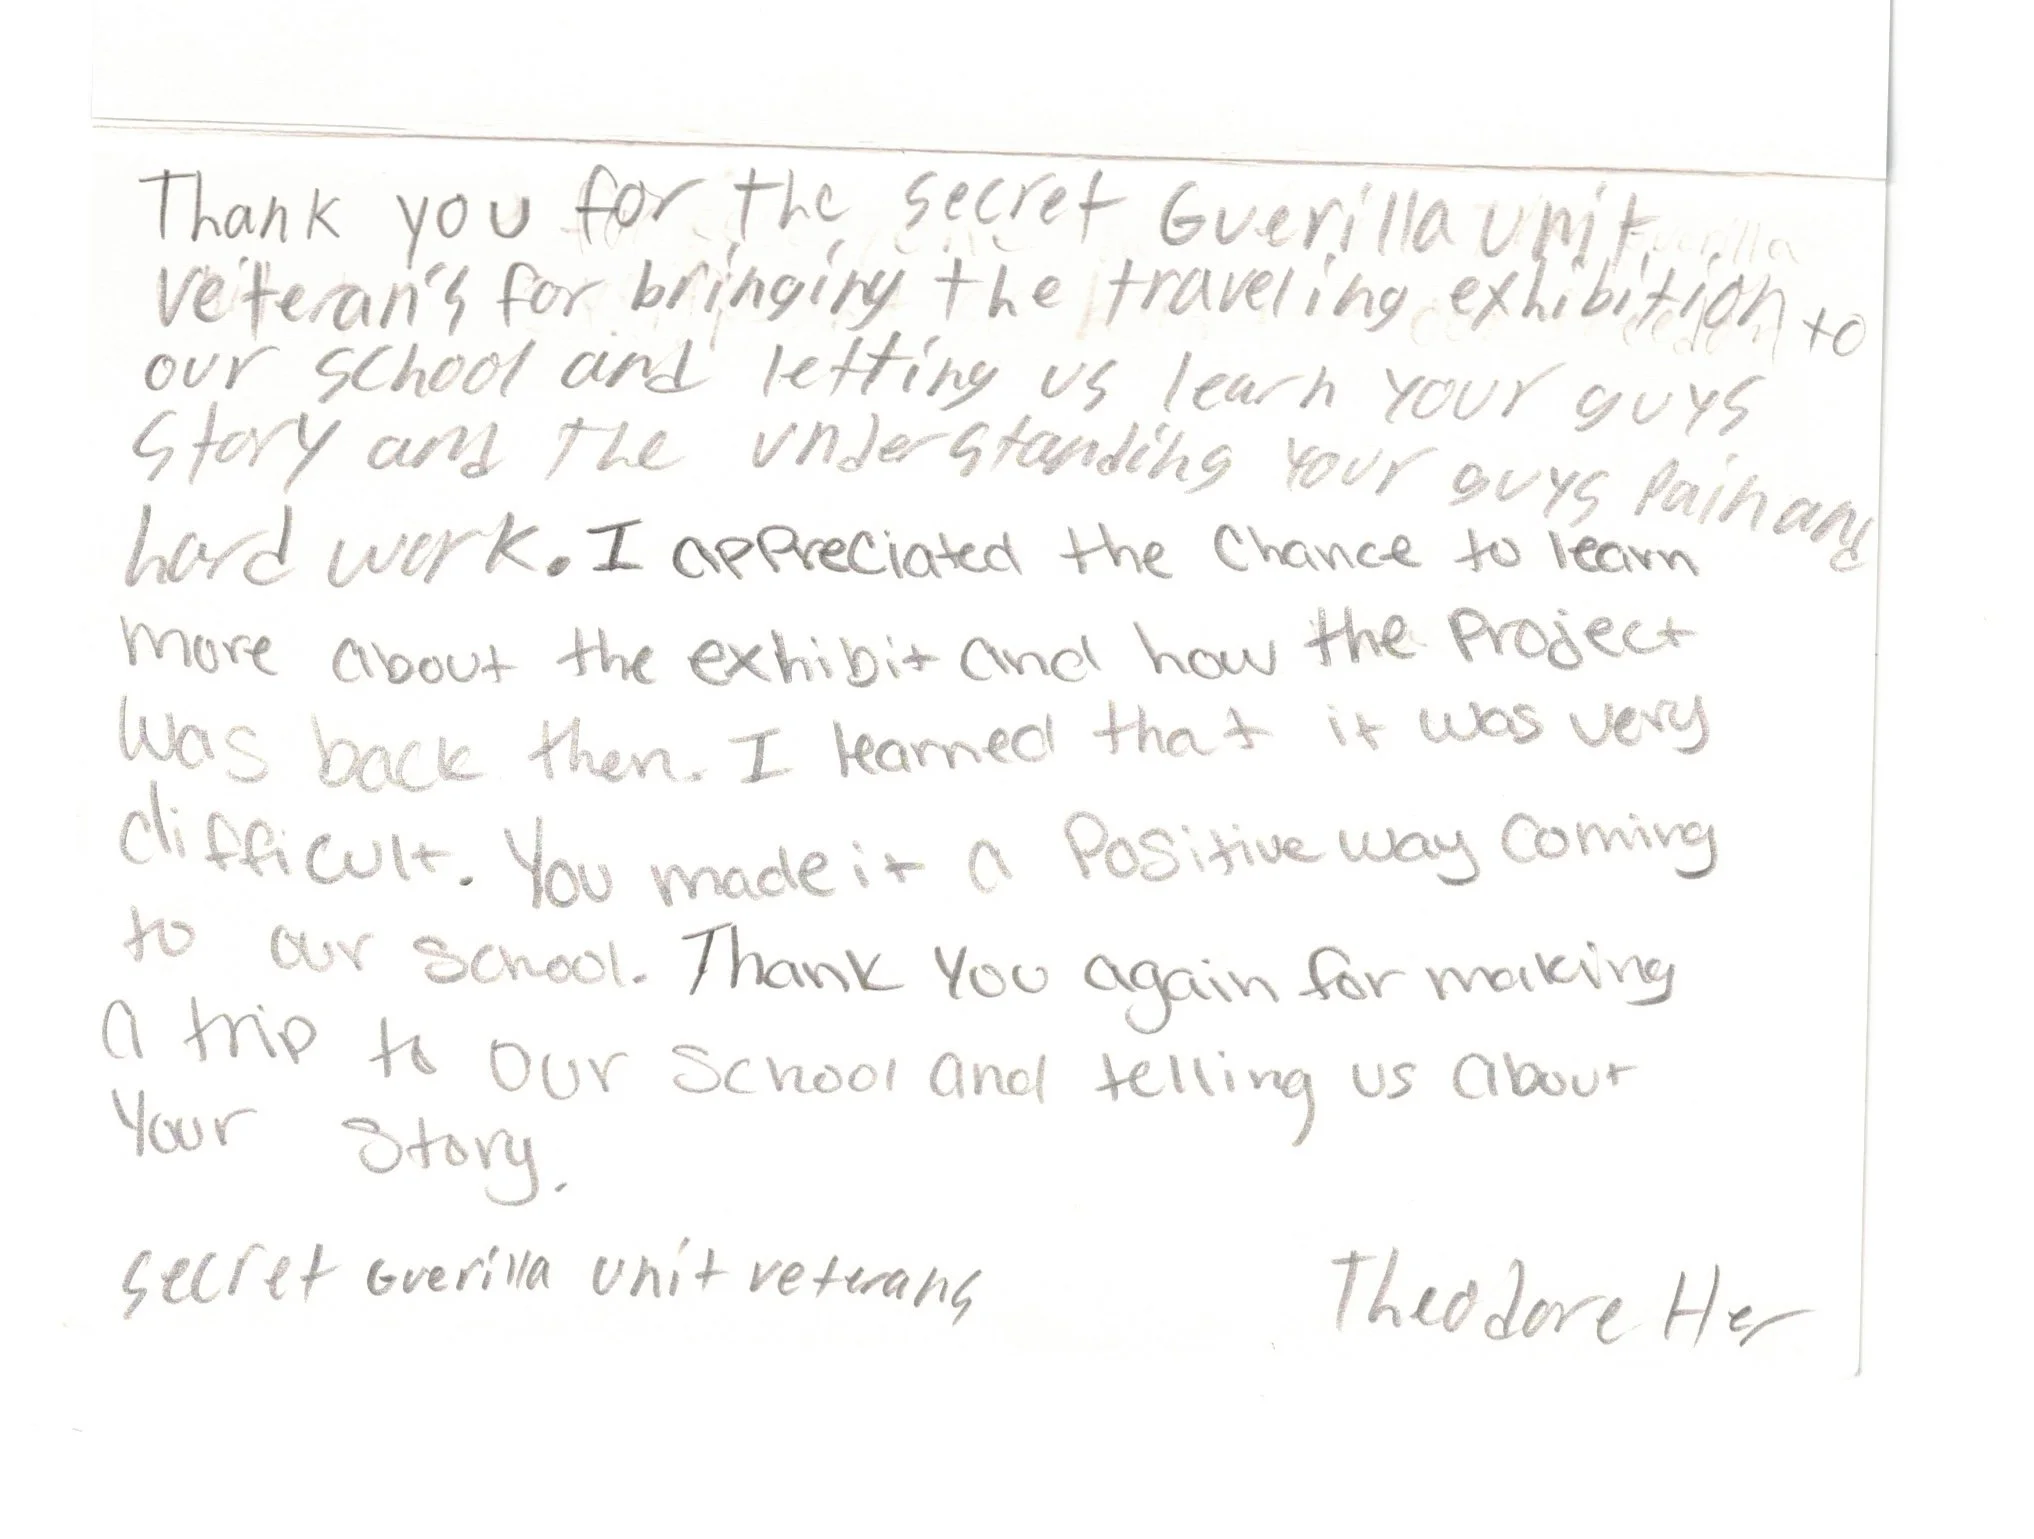 Thank you for the secret Guerilla unit
veteran's for bringing the traveling exhibition to
our school and letting us learn your guys
story and the understanding your guys pain and
hard work. I appreciated the chance to learn
more about the exhibit and how the project
was back then. I learned that it was very
difficult. You made it a positive way coming
to our school. Thank you again for making
a trip to our school and telling us about
your story.
secret Guerilla unit veterans
Theodore Her